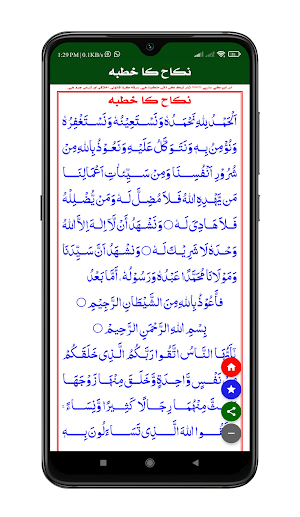 1:29 PM | 0.1KB/s
نکاح کا خطبہ
نکاح کا خطبہ
اَلْحَمْدُ لِلّٰهِ نَحْمَدُهٗ وَنَسْتَعِيْنُهٗ وَنَسْتَغْفِرُهٗ
وَنُؤْمِنُ بِهٖ وَنَتَوَكَّلُ عَلَيْهِ وَنَعُوْذُ بِاللّٰهِ مِنْ
شُرُوْرِ اَنْفُسِنَا وَمِنْ سَيِّئَاتِ اَعْمَالِنَا
مَنْ يَّهْدِهِ اللّٰهُ فَلَا مُضِلَّ لَهٗ وَمَنْ يُّضْلِلْهُ
فَلَا هَادِىَ لَهٗ ○ وَنَشْهَدُ اَنْ لَّا اِلٰهَ اِلَّا اللّٰهُ
وَحْدَهٗ لَا شَرِيْكَ لَهٗ ○ وَنَشْهَدُ اَنَّ سَيِّدَنَا
وَمَوْلَانَا مُحَمَّدًا عَبْدُهٗ وَرَسُوْلُهٗ، اَمَّا بَعْدُ
فَاَعُوْذُ بِاللّٰهِ مِنَ الشَّيْطَانِ الرَّجِيْمِ ○
بِسْمِ اللّٰهِ الرَّحْمٰنِ الرَّحِيْمِ ○
يٰۤاَيُّهَا النَّاسُ اتَّقُوْا رَبَّكُمُ الَّذِىْ خَلَقَكُمْ
نَّفْسٍ وَّاحِدَةٍ وَّخَلَقَ مِنْهَا زَوْجَهَا
مِنْهُمَا رِجَالًا كَثِيْرًا وَّنِسَآءً
اللّٰهَ الَّذِىْ تَسَآءَلُوْنَ بِهٖ